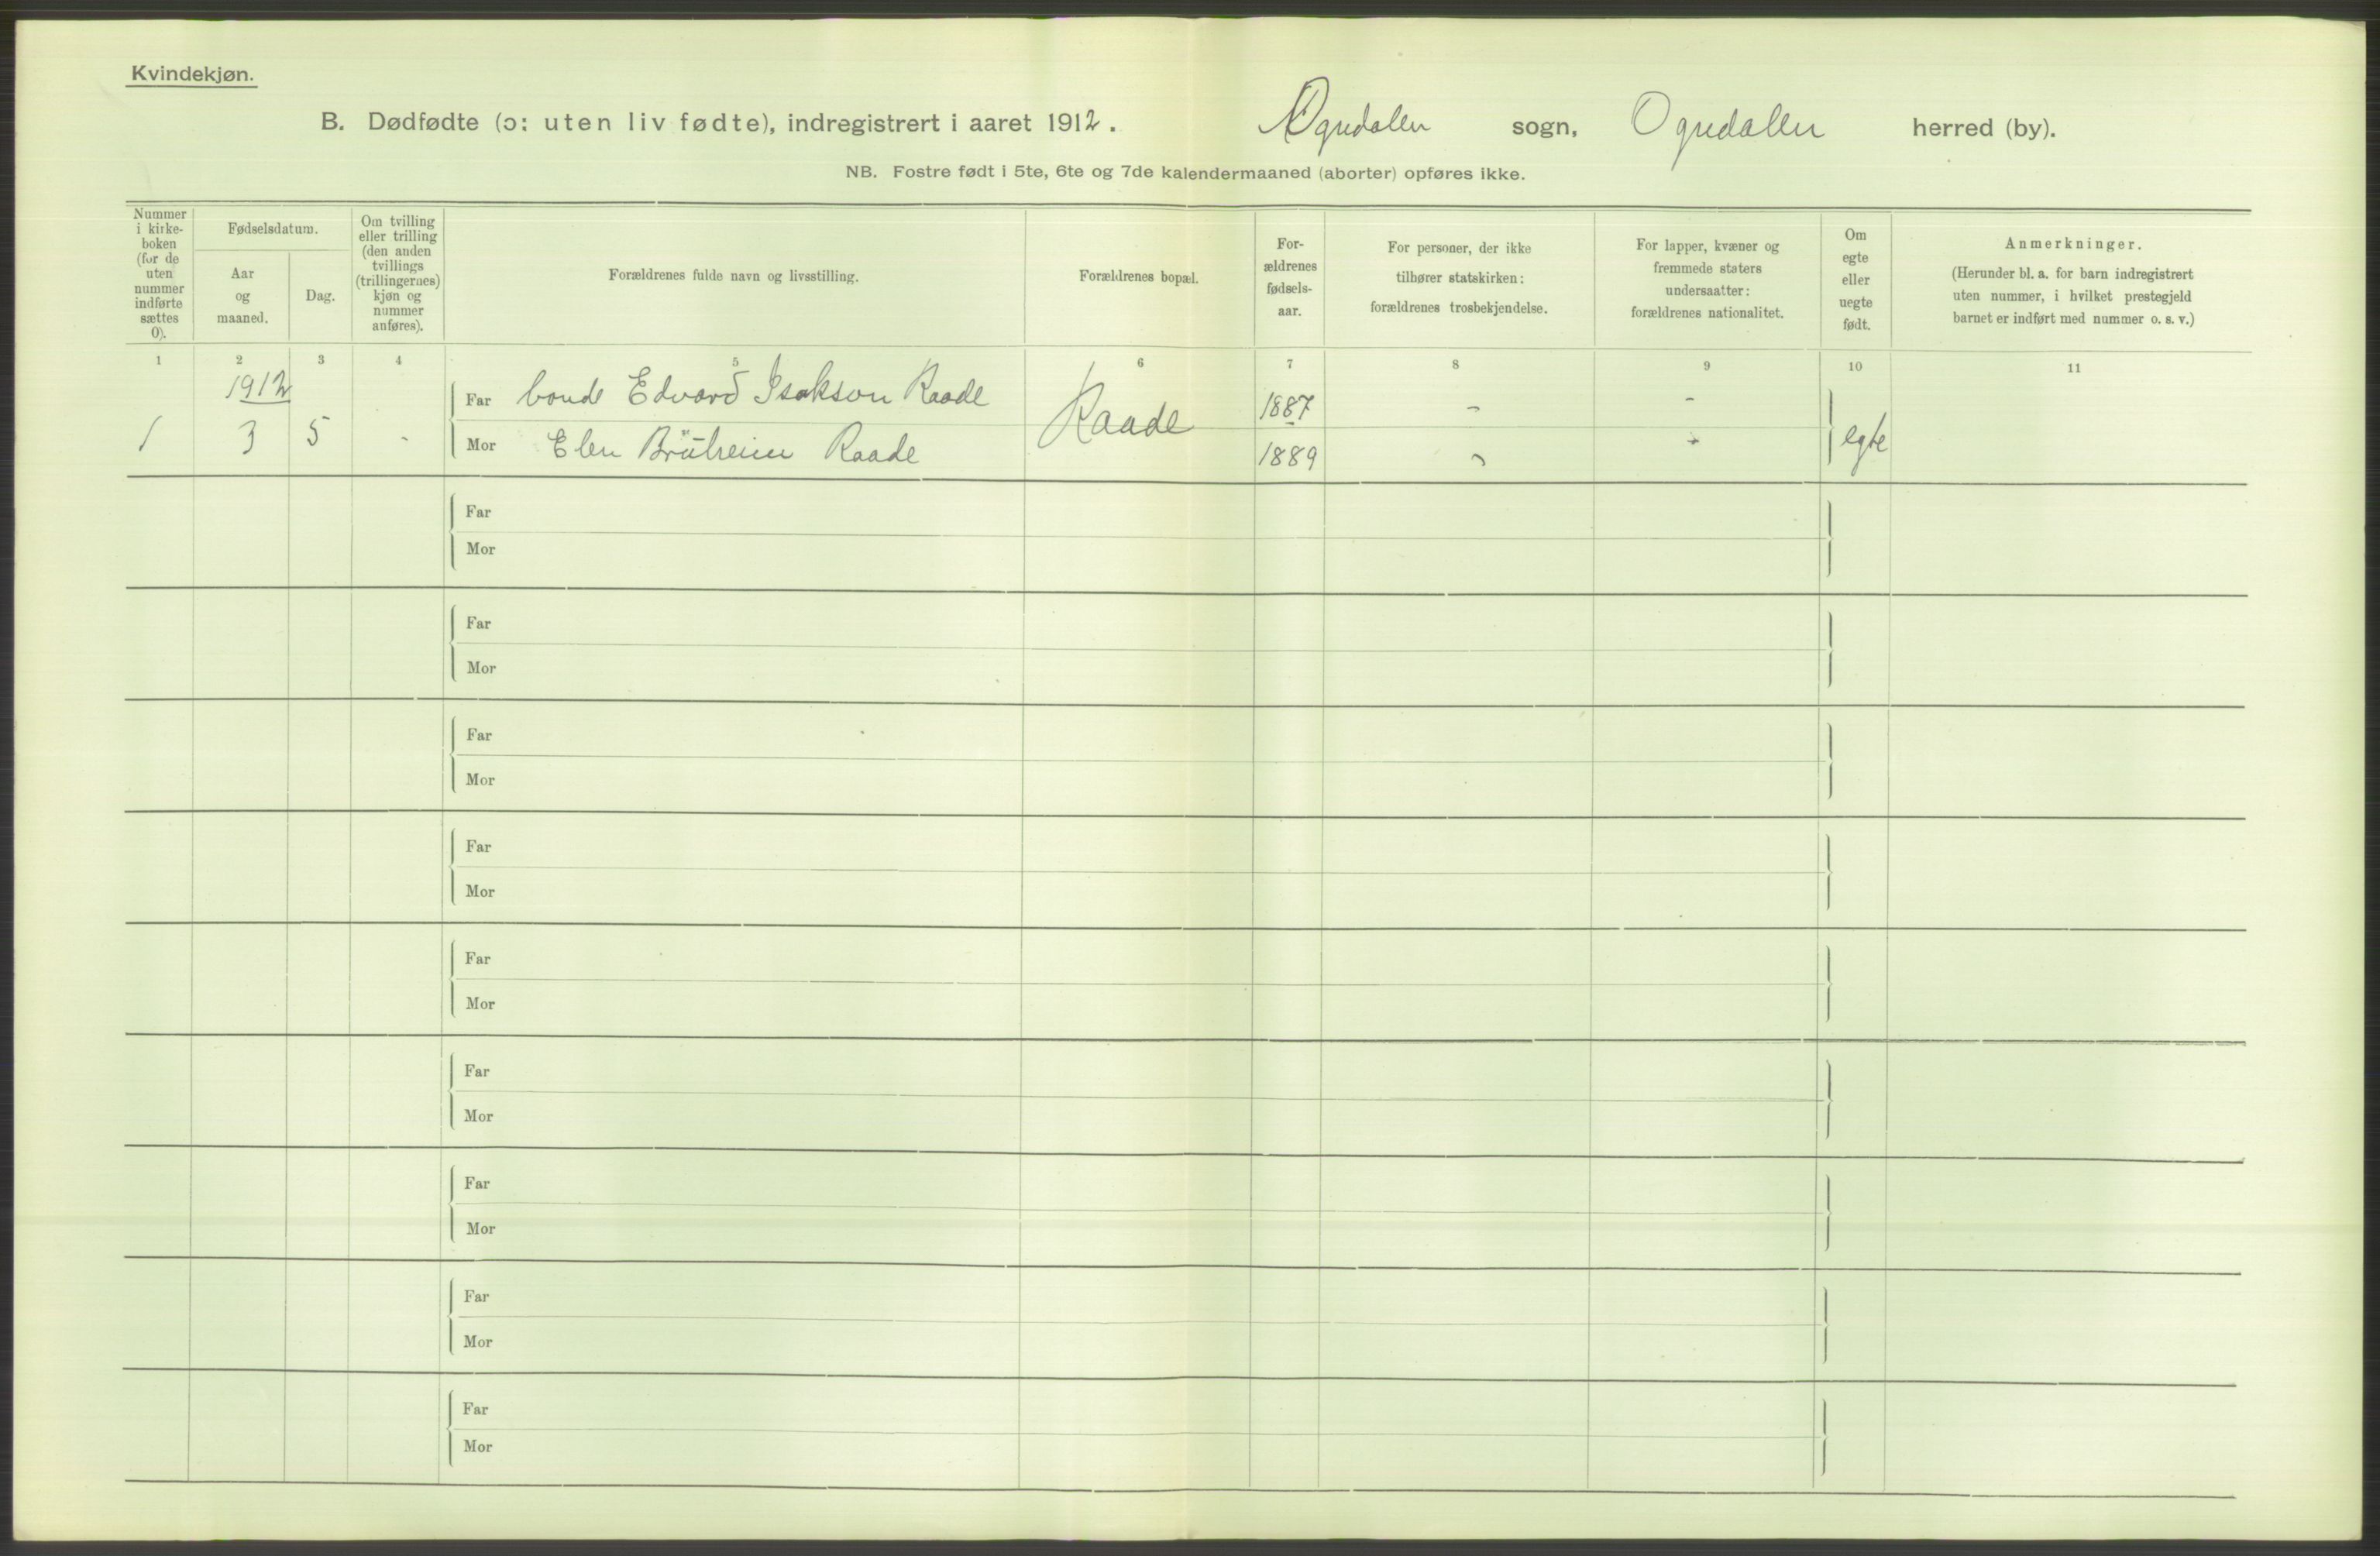 Kvindekjøn.
B. Dødfødte (ɔ: uten liv fødte), indregistrert i aaret 1912. Ogndalen sogn, Ogndalen herred (by).
NB. Fostre født i 5te, 6te og 7de kalendermaaned (aborter) opføres ikke.
Nummer
i kirke-
boken
(for de
uten
nummer
indførte
sættes
0).
Fødselsdatum.
Aar
og
maaned.
Dag.
Om tvilling
eller trilling
(den anden
tvillings
(trillingernes)
kjøn og
nummer
anføres).
Forældrenes fulde navn og livsstilling.
Forældrenes bopæl.
For-
ældrenes
fødsels-
aar.
For personer, der ikke
tilhører statskirken:
forældrenes trosbekjendelse.
For lapper, kvæner og
fremmede staters
undersaatter:
forældrenes nationalitet.
Om
egte
eller
uegte
født.
Anmerkninger.
(Herunder bl. a. for barn indregistrert
uten nummer, i hvilket prestegjeld
barnet er indført med nummer o. s. v.)
1 2 3 4 5 6 7 8 9 10 11
1912
Far bonde Edvard Isakson Raade Raade 1887 - -
1 3 5 - Mor Elen Raade 1889 - - egte
Far
Mor
Far
Mor
Far
Mor
Far
Mor
Far
Mor
Far
Mor
Far
Mor
Far
Mor
Far
Mor